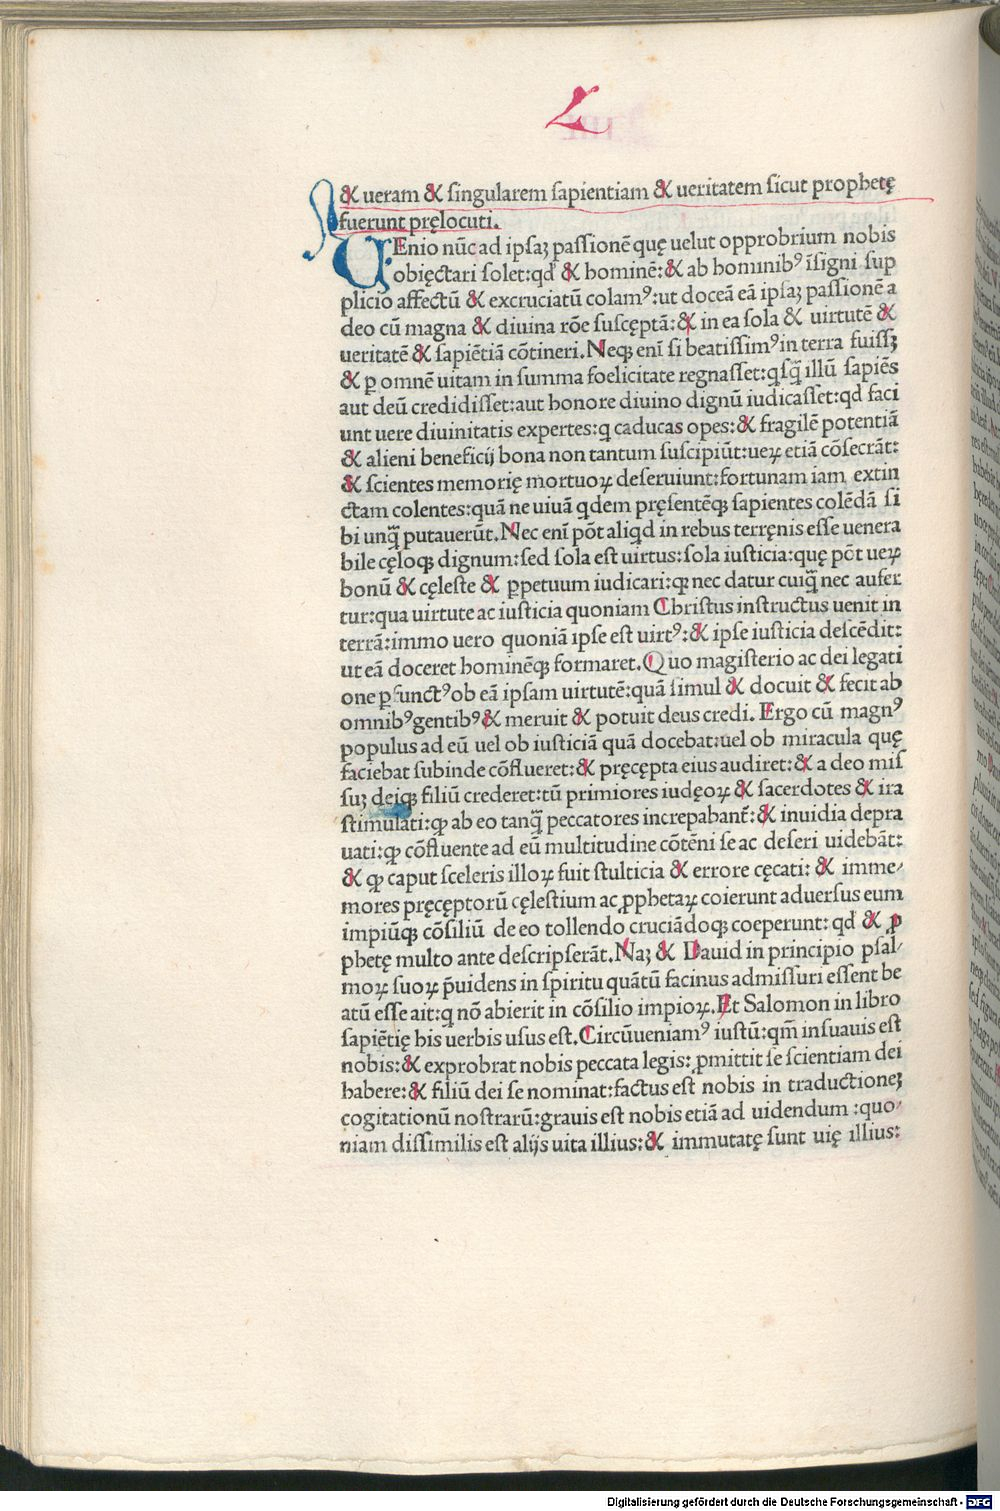 L
& ueram & singularem sapientiam & ueritatem sicut prophetę
fuerunt pręlocuti.
VEnio nūc ad ipsaꝫ passionē quę uelut opprobrium nobis
obięctari solet:qd̛ & hominē:& ab hominibꝰ īsigni sup
plicio affectū & excruciatū colamꝰ:ut doceā eā ipsaꝫ passionē a
deo cū magna & diuina rōe suscęptā:& in ea sola & uirtutē &
ueritatē & sapiētiā cōtineri. Neqꝫ enī si beatissimꝰ in terra fuissꝫ
& ꝑ omnē uitam in summa foelicitate regnasset:qsq̄ illū sapiēs
aut deū credidisset:aut honore diuino dignū iudicasset:qd̛ faci
unt uere diuinitatis expertes:q caducas opes:& fragilē potentiā
& alieni beneficij bona non tantum suscipiūt:ueꝝ etiā cōsecrāt:
& scientes memorię mortuoꝝ deseruiunt:fortunam iam extin
ctam colentes:quā ne uiuā qdem pręsentēqꝫ sapientes colēdā si
bi unq̄ putauerūt. Nec enī pōt aliqd in rebus terręnis esse uenera
bile cęloqꝫ dignum:sed sola est uirtus:sola iusticia:quę pōt ueꝝ
bonū & cęleste & ꝑpetuum iudicari:ꝙ nec datur cuiq̄ nec aufer
tur:qua uirtute ac iusticia quoniam Christus instructus uenit in
terrā:immo uero quoniā ipse est uirtꝰ:& ipse iusticia descēdit:
ut eā doceret hominēqꝫ formaret. Quo magisterio ac dei legati
one ꝑfunctꝰ ob eā ipsam uirtutē:quā simul & docuit & fecit ab
omnibꝰ gentibꝰ & meruit & potuit deus credi. Ergo cū magnꝰ
populus ad eū uel ob iusticiā quā docebat:uel ob miracula quę
faciebat subinde cōflueret:& pręcępta eius audiret:& a deo mis
suꝫ deiqꝫ filiū crederet:tū primiores iudęoꝝ & sacerdotes & ira
stimulati:ꝙ ab eo tanq̄ peccatores increpabant̄:& inuidia depra
uati:ꝙ cōfluente ad eū multitudine cōtēni se ac deseri uidebāt:
& ꝙ caput sceleris illoꝝ fuit stulticia & errore cęcati: & imme-
mores pręcęptorū cęlestium ac ꝓphetaꝝ coierunt aduersus eum
impiūqꝫ cōsiliū de eo tollendo cruciādoqꝫ coeperunt: qd̛ & ꝓ
phetę multo ante descripserāt. Naꝫ & Dauid in principio psal-
moꝝ suoꝝ p̄uidens in spiritu quātū facinus admissuri essent be
atū esse ait:q nō abierit in cōsilio impioꝝ. Et Salomon in libro
sapiētię his uerbis usus est. Circūueniamꝰ iustū:qm̄ insuauis est
nobis:& exprobrat nobis peccata legis: ꝓmittit se scientiam dei
habere:& filiū dei se nominat:factus est nobis in traductioneꝫ
cogitationū nostrarū:grauis est nobis etiā ad uidendum :quo-
niam dissimilis est alijs uita illius:& immutatę sunt uię illius:
Digitalisierung gefördert durch die Deutsche Forschungsgemeinschaft - DFG